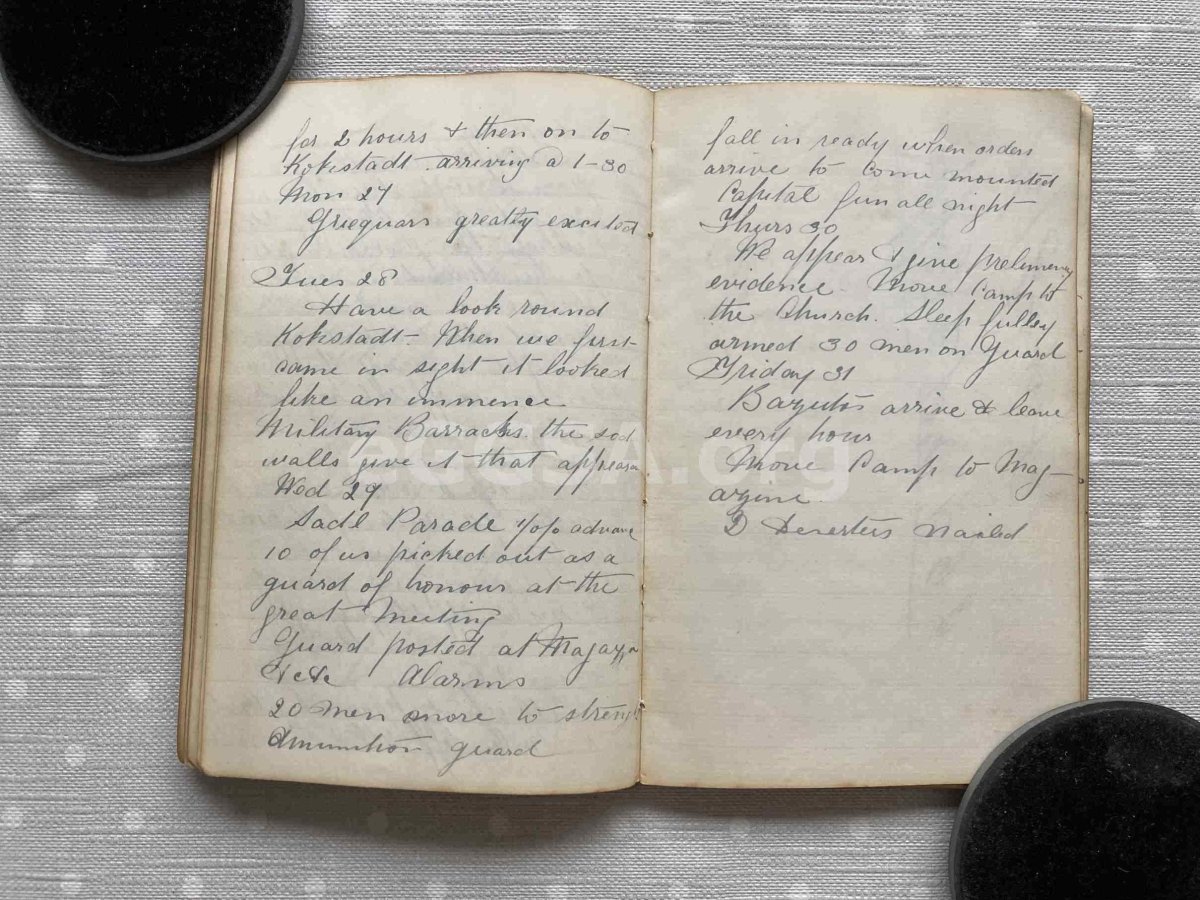 for 2 hours & then on to
Kokstadt arriving @ 1-30
Mon 27
Griequars greatly excited
Tues 28
Have a look round
Kokstadt - When we first
came in sight it looked
like an immence
Military Barracks. the sod
walls give it that appearan
Wed 29
Sadl Parade advance
10 of us picked out as a
guard of honour at the
great Meeting
Guard posted at
&c&c Alarms
20 men more to strength
Amunition guard
fall in ready when orders
arrive to come mounted
Capital fun all night
Thurs 30
We appear & give prelimenry
evidence. Move Camp to
the Church. Sleep fulley
armed 30 men on Guard
Friday 31
Bazutos arrive & leave
every hour
Move Camp to Mag-
azine.
2 Deserters nailed
eGGSA.org